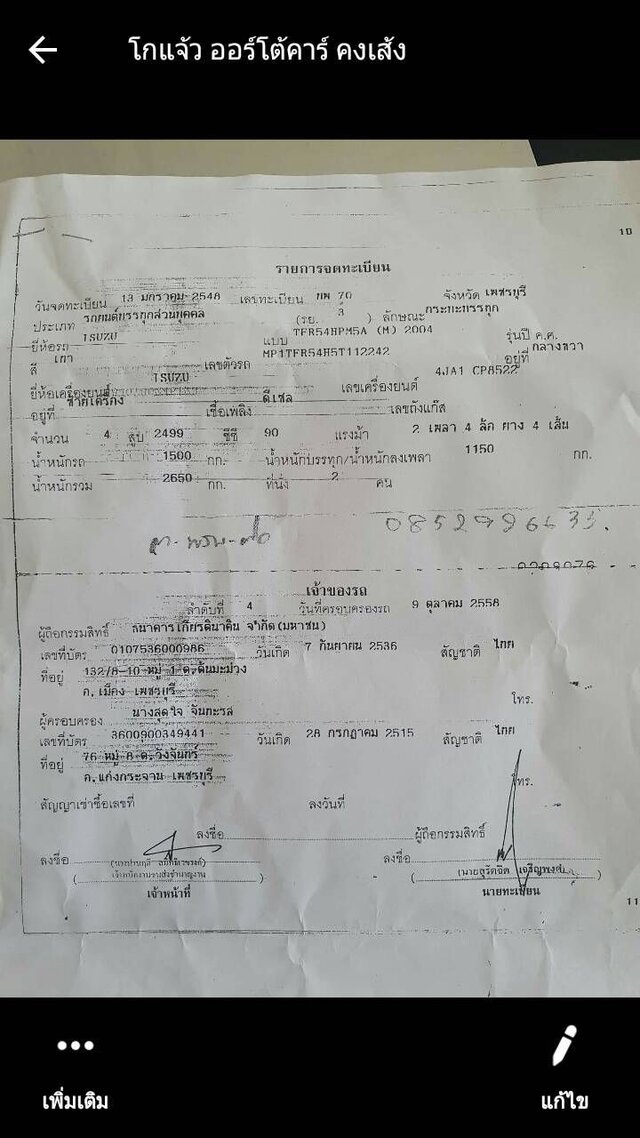 โกแจ้ว ออร์โต้คาร์ คงเส้ง
10
รายการจดทะเบียน
วันจดทะเบียน 13 มกราคม 2548 เลขทะเบียน บพ 70 จังหวัด เพชรบุรี
ประเภท รถยนต์บรรทุกส่วนบุคคล (รย. 3 ) ลักษณะ กระบะบรรทุก
ยี่ห้อรถ ISUZU แบบ TFR54HPM5A (M) 2004 รุ่นปี ค.ศ.
สี เทา เลขตัวรถ MP1TFR54H5T112242 อยู่ที่ กลางขวา
ยี่ห้อเครื่องยนต์ ISUZU เลขเครื่องยนต์ 4JA1 CP8522
อยู่ที่ ซ้ายเครื่อง เชื้อเพลิง ดีเซล เลขถังแก๊ส
จำนวน 4 สูบ 2499 ซีซี 90 แรงม้า 2 เพลา 4 ล้อ ยาง 4 เส้น
น้ำหนักรถ 1500 กก. น้ำหนักบรรทุก/น้ำหนักลงเพลา 1150 กก.
น้ำหนักรวม 2650 กก. ที่นั่ง 2 คน
เจ้าของรถ
ลำดับที่ 4 วันที่ครอบครองรถ 9 ตุลาคม 2558
ผู้ถือกรรมสิทธิ์ ธนาคารเกียรตินาคิน จำกัด(มหาชน)
เลขที่บัตร 0107536000986 วันเกิด 7 กันยายน 2536 สัญชาติ ไทย
ที่อยู่ 132/8-10 หมู่ 1 ต.ต้นมะม่วง
อ.เมือง เพชรบุรี โทร.
ผู้ครอบครอง นางสุดใจ จันทะรส
เลขที่บัตร 3600900349441 วันเกิด 28 กรกฎาคม 2515 สัญชาติ ไทย
ที่อยู่ 76 หมู่ 8 ต.วังจันทร์
อ.แก่งกระจาน เพชรบุรี โทร.
สัญญาเช่าซื้อเลขที่ ลงวันที่
ลงชื่อ ผู้ถือกรรมสิทธิ์
ลงชื่อ ลงชื่อ
(นายสุรัตจิต เจริญพงศ์)
เจ้าหน้าที่ นายทะเบียน
11
เพิ่มเติม แก้ไข